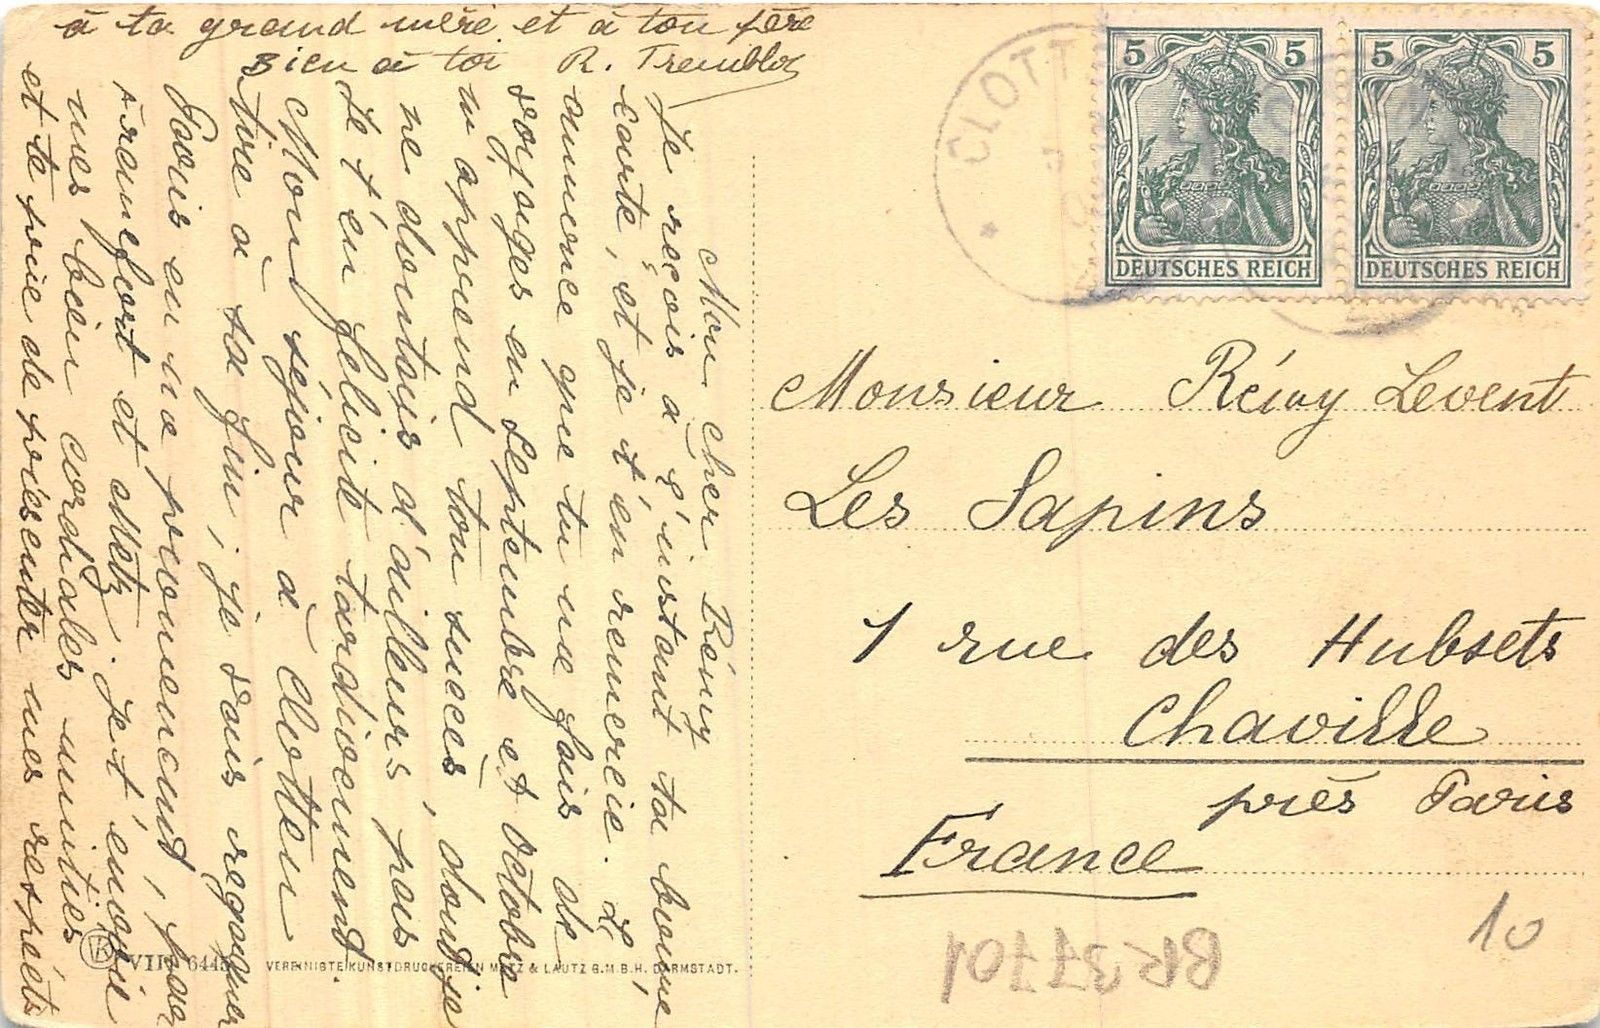 Mon cher Rémy
Je reçois à l'instant ta bonne
carte, et je t'en remercie. L'
annonce que tu me fais de
voyages en Septembre et Octobre
m'apprend ton succès, dont je
ne doutais d'ailleurs pas
Je t'en félicite tardivement.
Mon séjour à Clotten
tire à sa fin, je vais regagner
Paris en me promenant, par
Francfort et Metz. Je t'envoie
mes bien cordiales amitiés
et te prie de présenter mes respects
à ta grand mère et à ton père
Bien à toi R. Tremblot
CLOTT
5 5
DEUTSCHES REICH
5 5
DEUTSCHES REICH
Monsieur Rémy Levent
Les Sapins
1 rue des Hubsets
Chaville
près Paris
France
10
BK37701
VEREINIGTE KUNSTDRUCKEREIEN METZ & LAUTZ G.M.B.H. DARMSTADT.